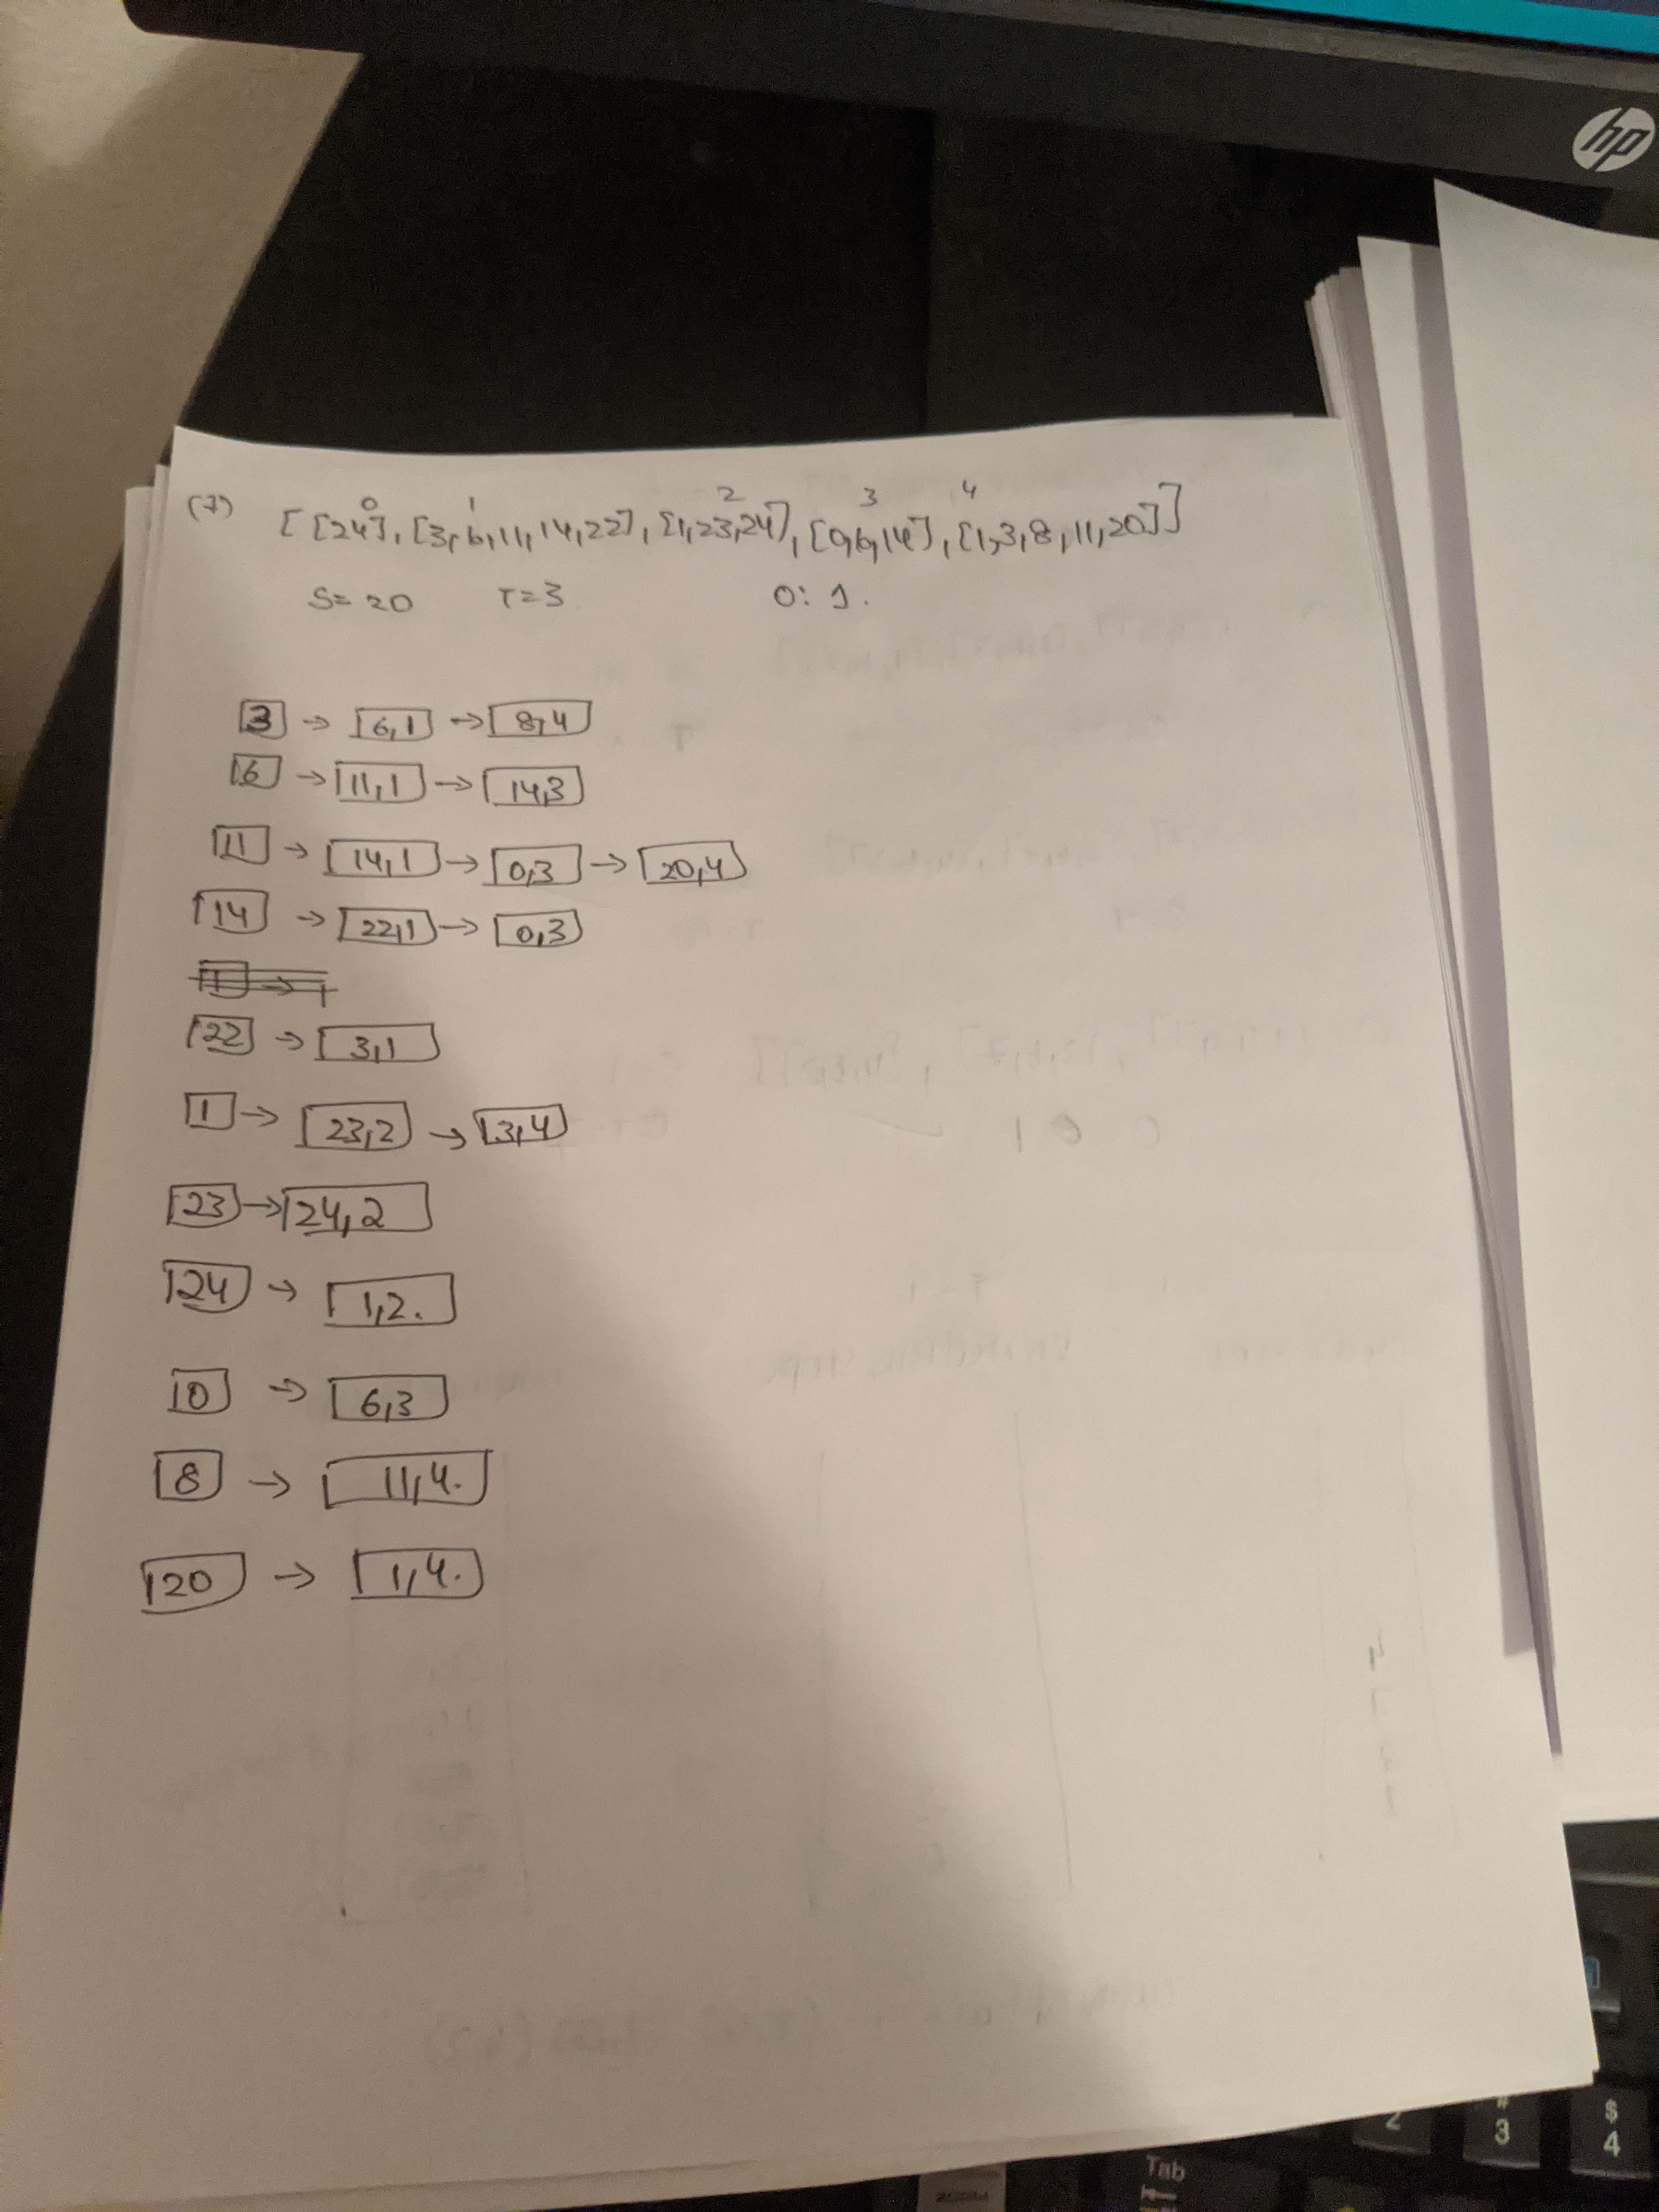 hp
(7) [[24], [3,6,11,14,22], [1,23,24], [0,6,14], [1,3,8,11,20]]
0 1 2 3 4
S= 20 T=3 0: 1.
3 → 6,1 → 8,4
6 → 11,1 → 14,3
11 → 14,1 → 0,3 → 20,4
14 → 22,1 → 0,3
22 → 3,1
1 → 23,2 → 3,4
23 → 24,2
24 → 1,2.
0 → 6,3
8 → 11,4.
20 → 1,4.
2
# 3
$ 4
Tab